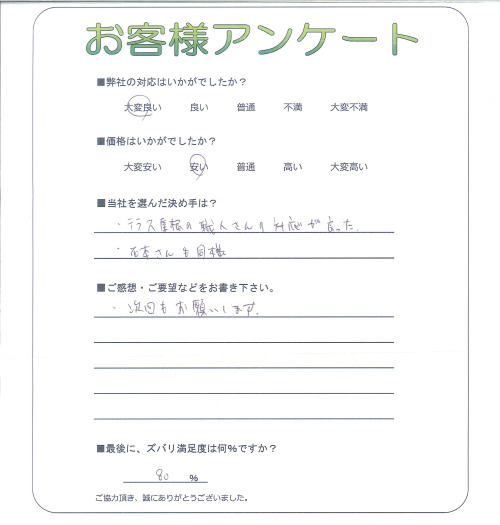 お客様アンケート
■弊社の対応はいかがでしたか？
大変良い 良い 普通 不満 大変不満
■価格はいかがでしたか？
大変安い 安い 普通 高い 大変高い
■当社を選んだ決め手は？
・テラス屋根の職人さんの対応が良った.
・石本さんも同様
■ご感想・ご要望などをお書き下さい。
・次回もお願いします.
■最後に、ズバリ満足度は何%ですか？
80 %
ご協力頂き、誠にありがとうございました。